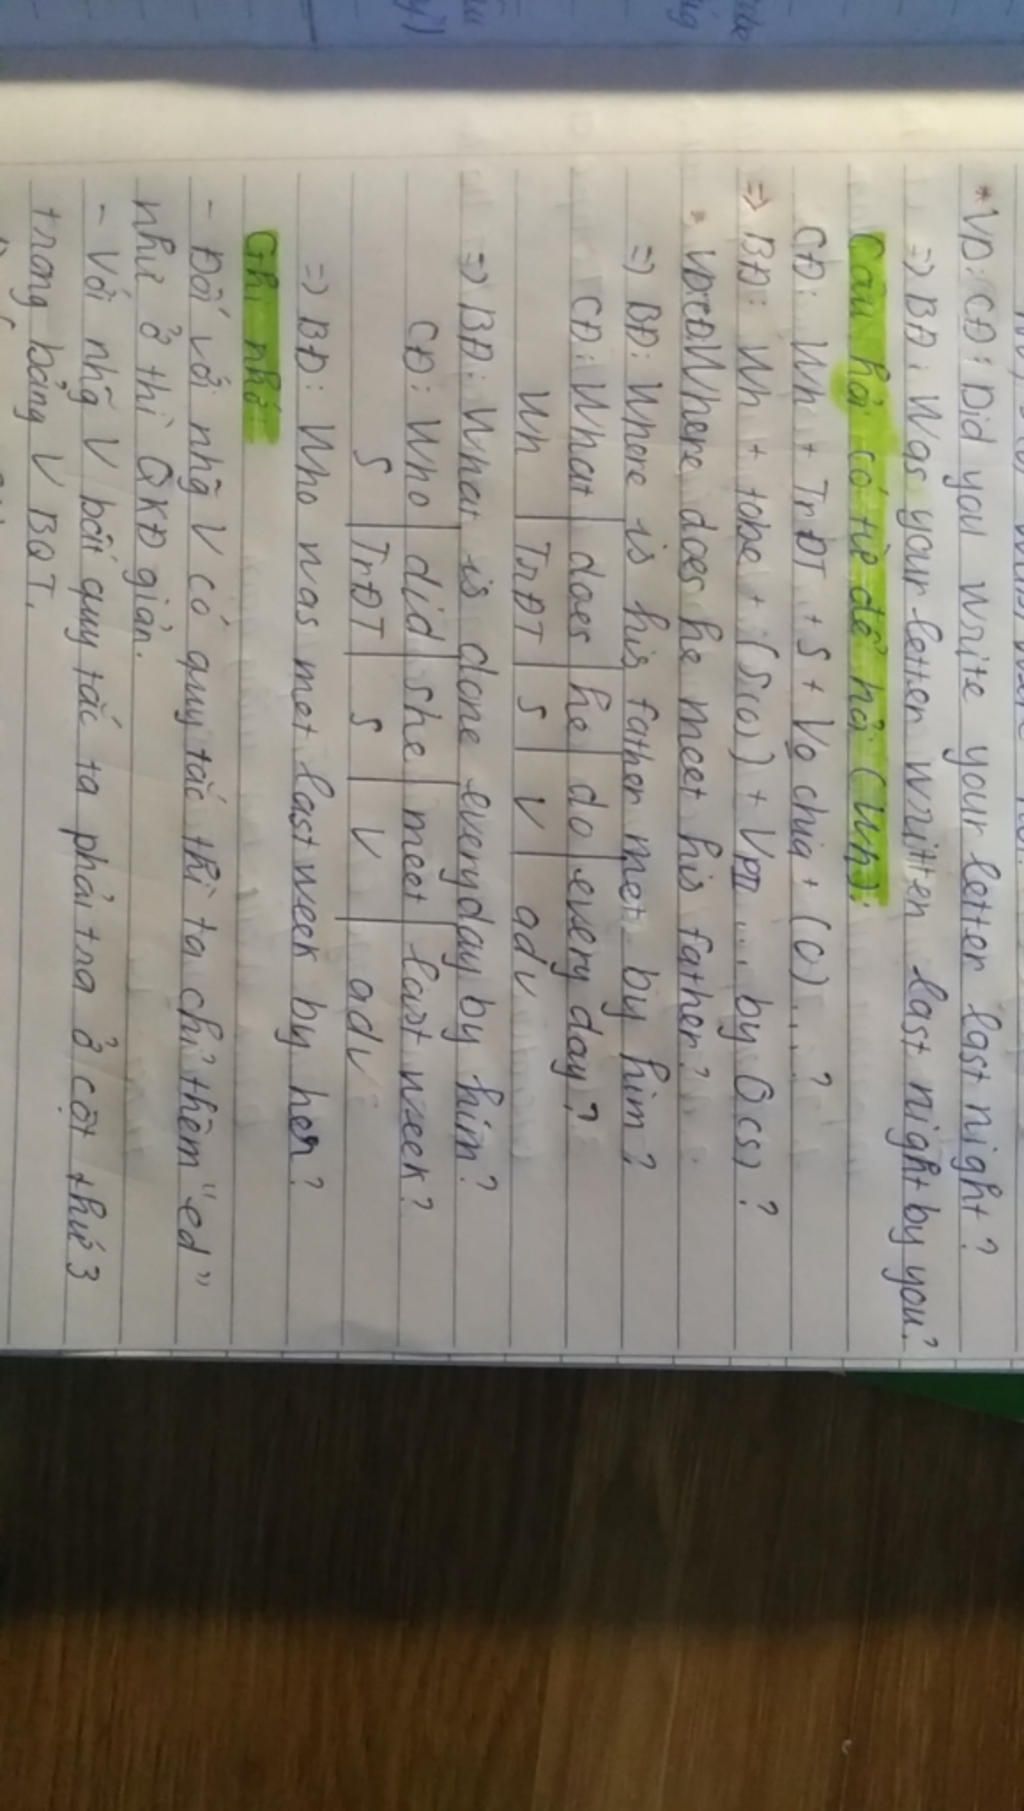 * VD: CĐ: Did you write your letter last night?
=> BĐ: Was your letter written last night by you?
Câu hỏi có từ để hỏi (Wh):
CĐ: Wh + TrĐT + S + Vo chia + (O)...?
=> BĐ: Wh + tobe + (S(O)) + VPII ... by O(S)?
* VD: CĐ Where does he meet his father?
=> BĐ: Where is his father met by him?
CĐ: What | does | he | do | every day?
Wh | TrĐT | S | V | adv
=> BĐ: What is done everyday by him?
CĐ: Who | did | she | meet | last week?
S | TrĐT | S | V | adv
=> BĐ: Who was met last week by her?
Ghi nhớ:
- Đối với nhữg V có quy tắc thì ta chỉ thêm "ed"
như ở thì QKĐ giản.
- Với nhữg V bất quy tắc ta phải tra ở cột thứ 3
trong bảng V BQT.